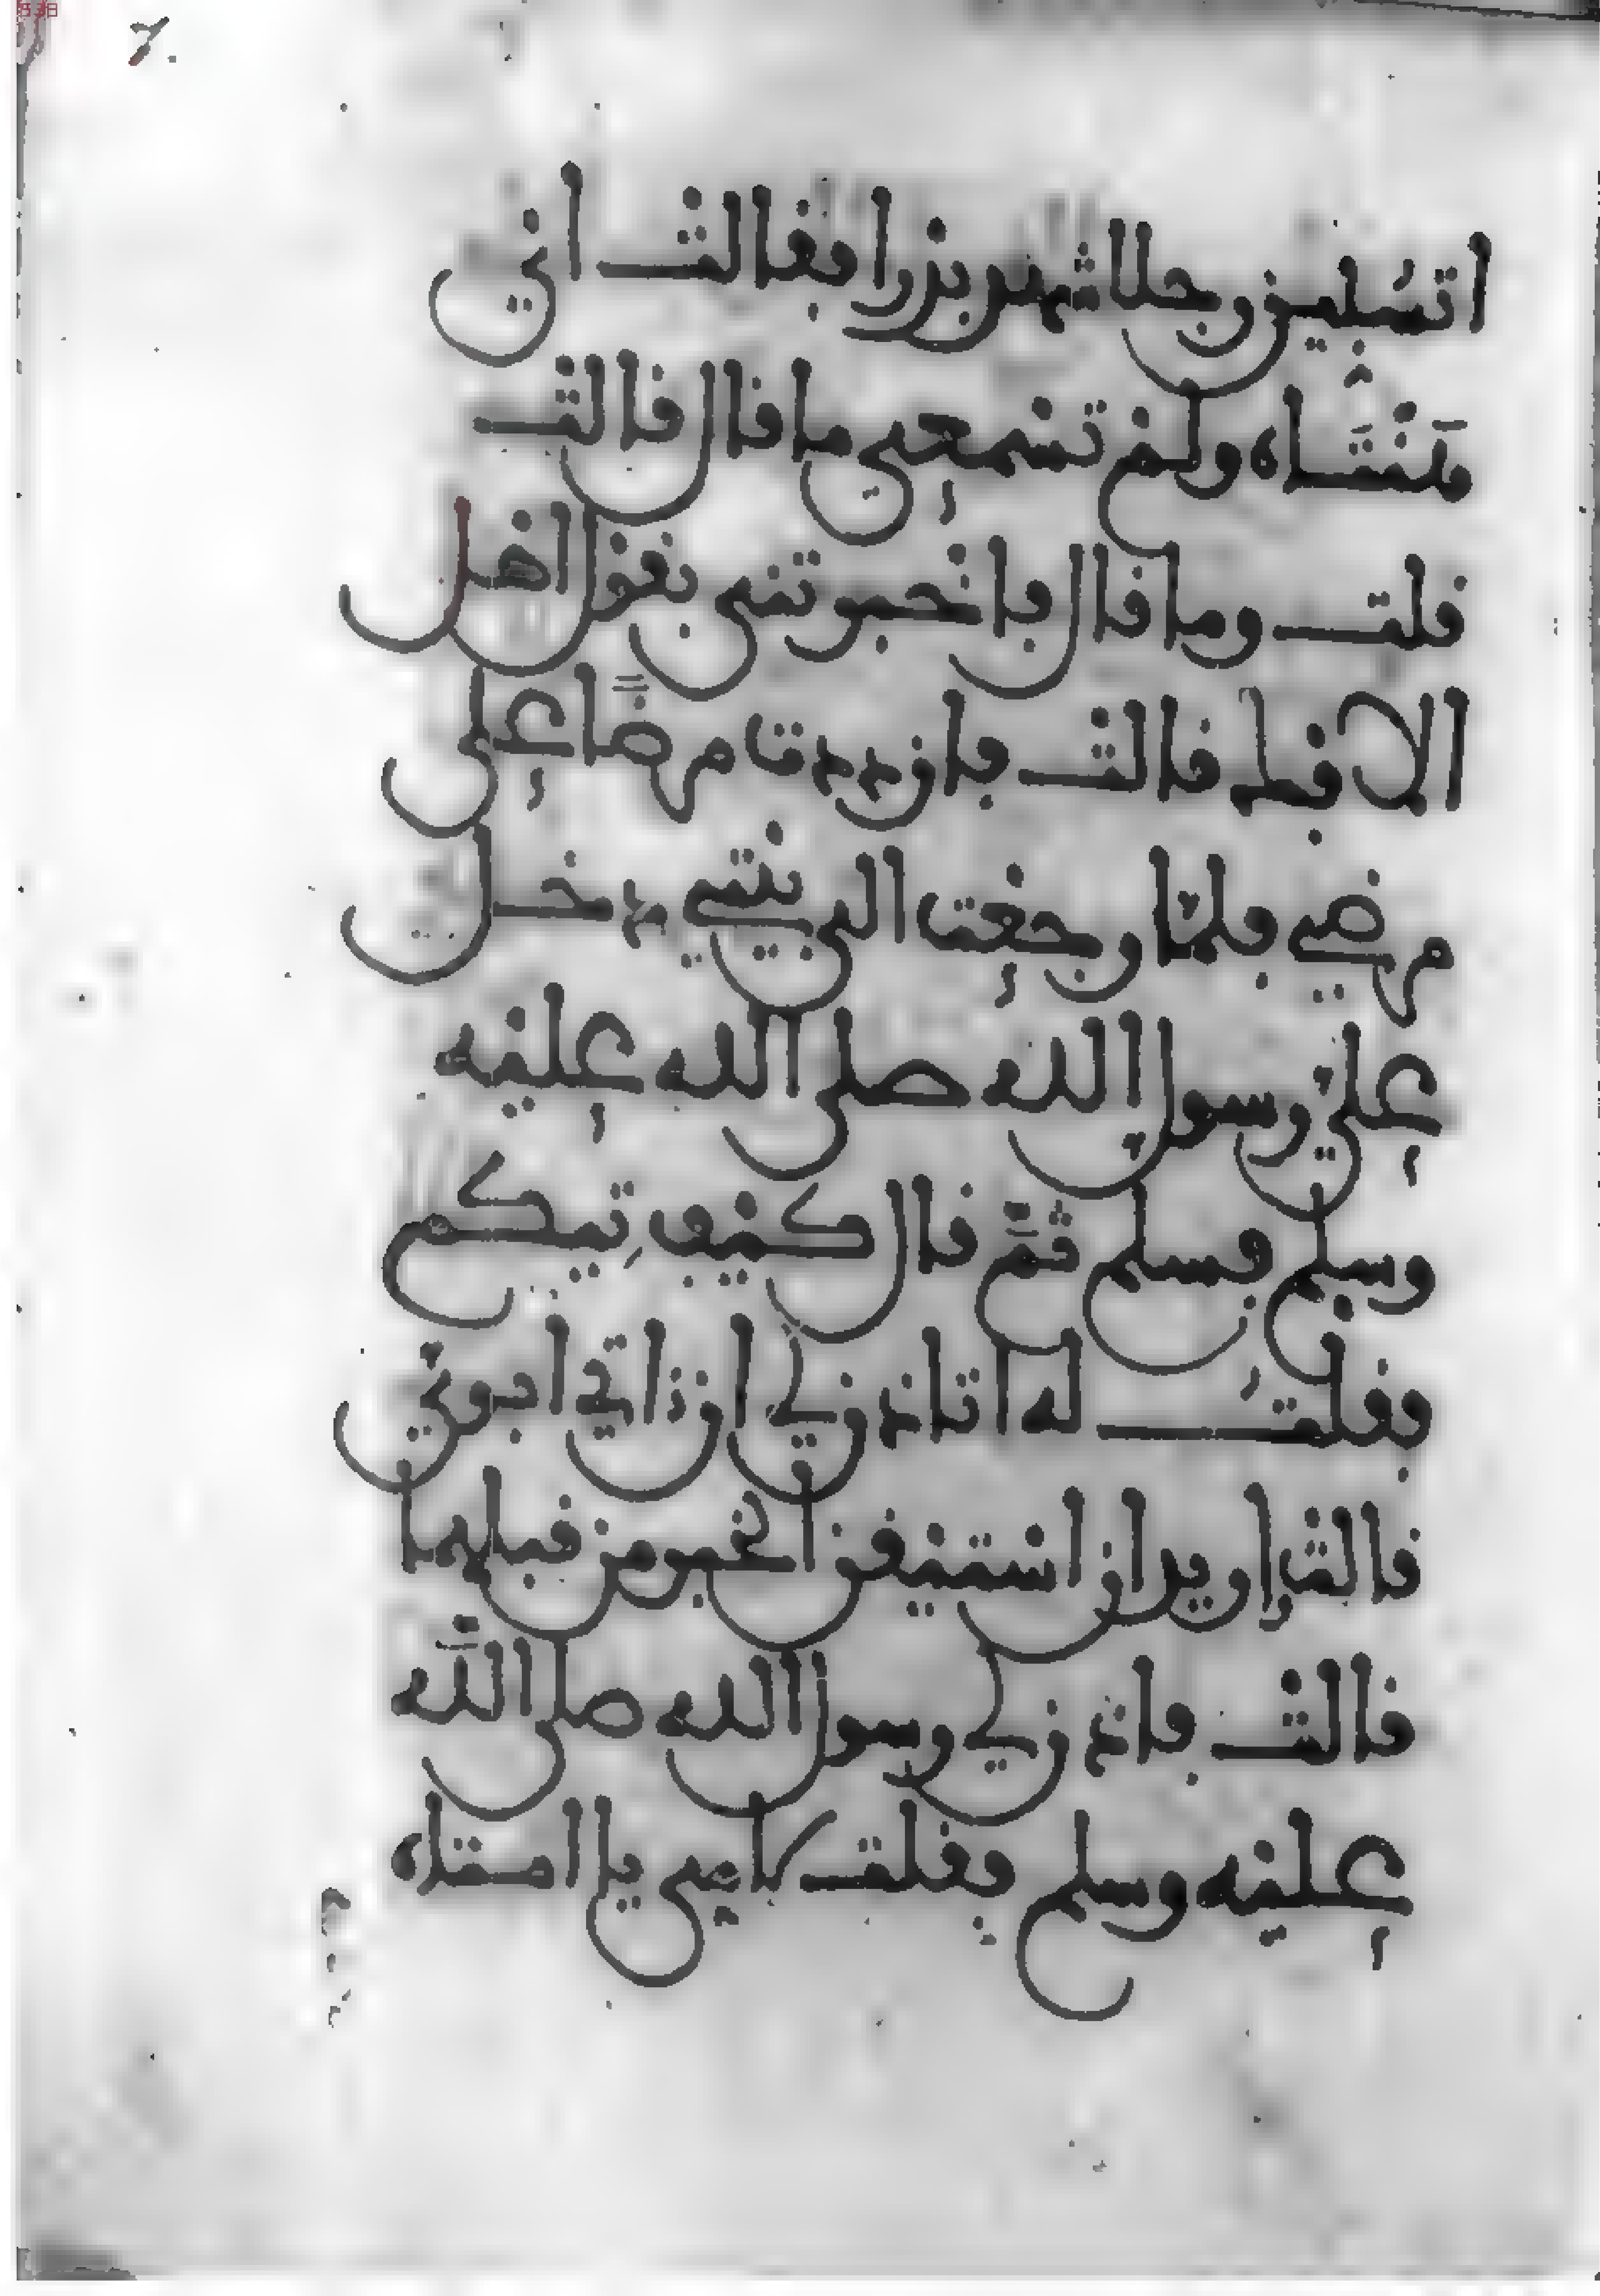 7.
اتسبين رجلا شهد بدرا فقالت اني
هنتاه ولم تسمعي ما قال قالت
قلت وما قال فاخبرتني بقول اهل
الافك قالت فازددت مرضا على
مرضي فلما رجعت الى بيتي دخل
علي رسول الله صلى الله عليه
وسلم فسلم ثم قال كيف تيكم
فقلت له اتاذن لي ان اتي ابوي
قالت واريد ان استيقن الخبر من قبلهما
قالت فاذن لي رسول الله صلى الله
عليه وسلم فقلت لامي يا امتاه